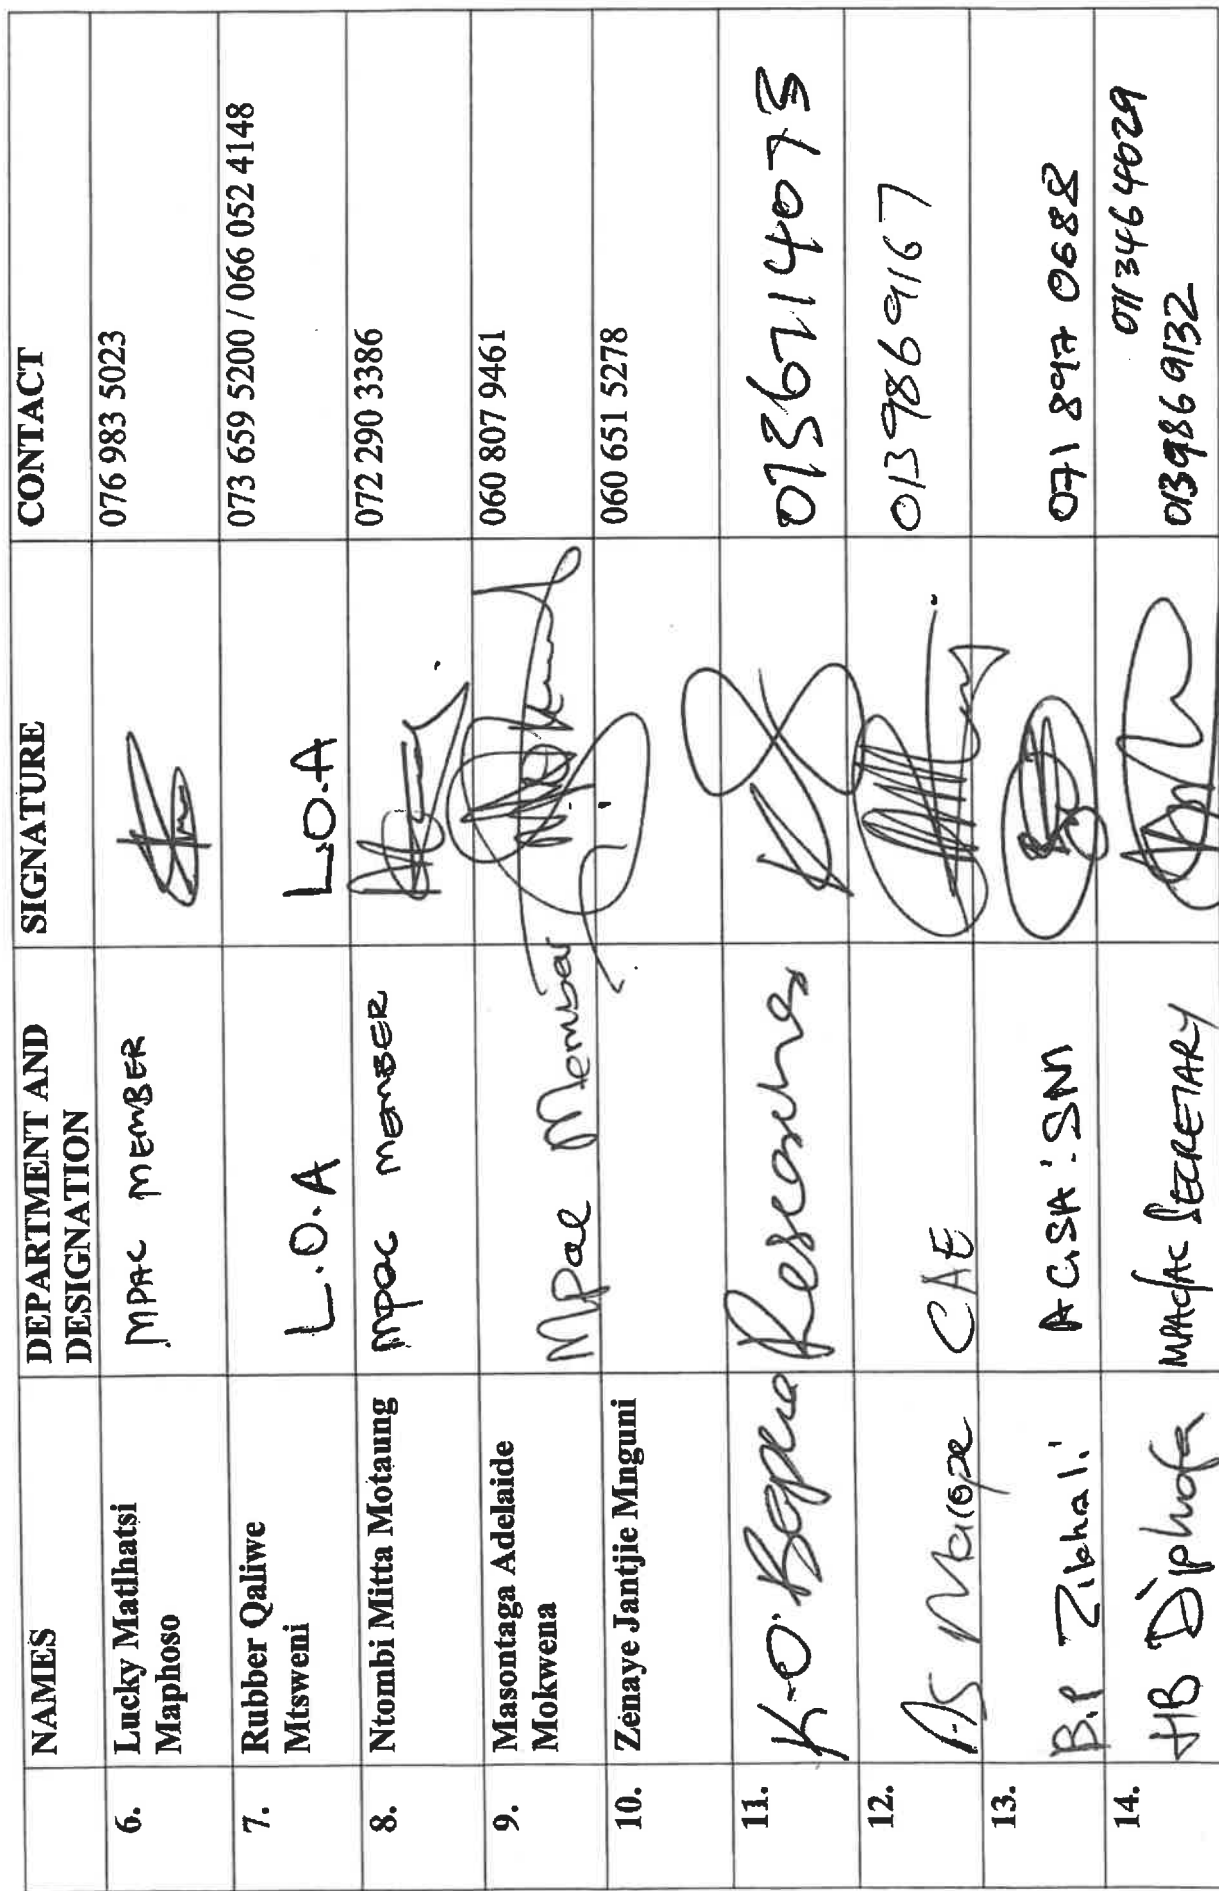 NAMES DEPARTMENT AND DESIGNATION SIGNATURE CONTACT
6. Lucky Matlhatsi Maphoso MPAC MEMBER 076 983 5023
7. Rubber Qaliwe Mtsweni L.O.A L.O.A 073 659 5200 / 066 052 4148
8. Ntombi Mitta Motaung MPAC MEMBER 072 290 3386
9. Masontaga Adelaide Mokwena MPAC Member 060 807 9461
10. Zenaye Jantjie Mnguni 060 651 5278
11. K.O. Researcher 0136711 4073
12. AS CAE 013 986 9167
13. B.P Zikhali AGSA: SM 071 897 0688
14. HB Diphofa SECRETARY 071 346 4029
013986 9132